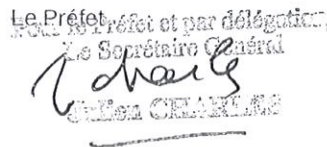 Le Préfet,
Pour le Préfet et par délégation,
Le Secrétaire Général
Julien CHARLES